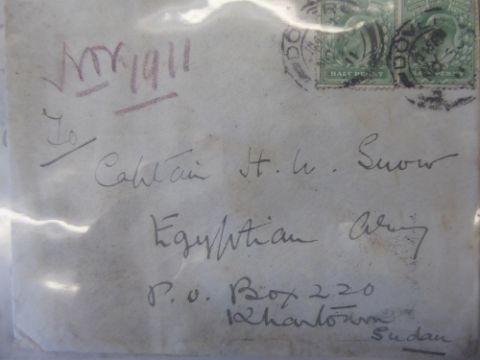 Nov 1911
HALF PENNY
To
Captain H. W. Snow
Egyptian Army
P.O. Box 220
Khartoum
Sudan